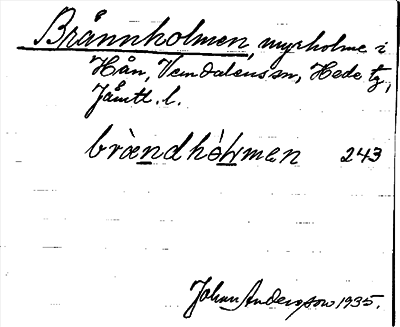 Brännholmen, myrholme i
Hån, Vemdalens sn, Hede tg,
Jämtl. l.
bràndhòlmen 243
Johan Andersson 1935.